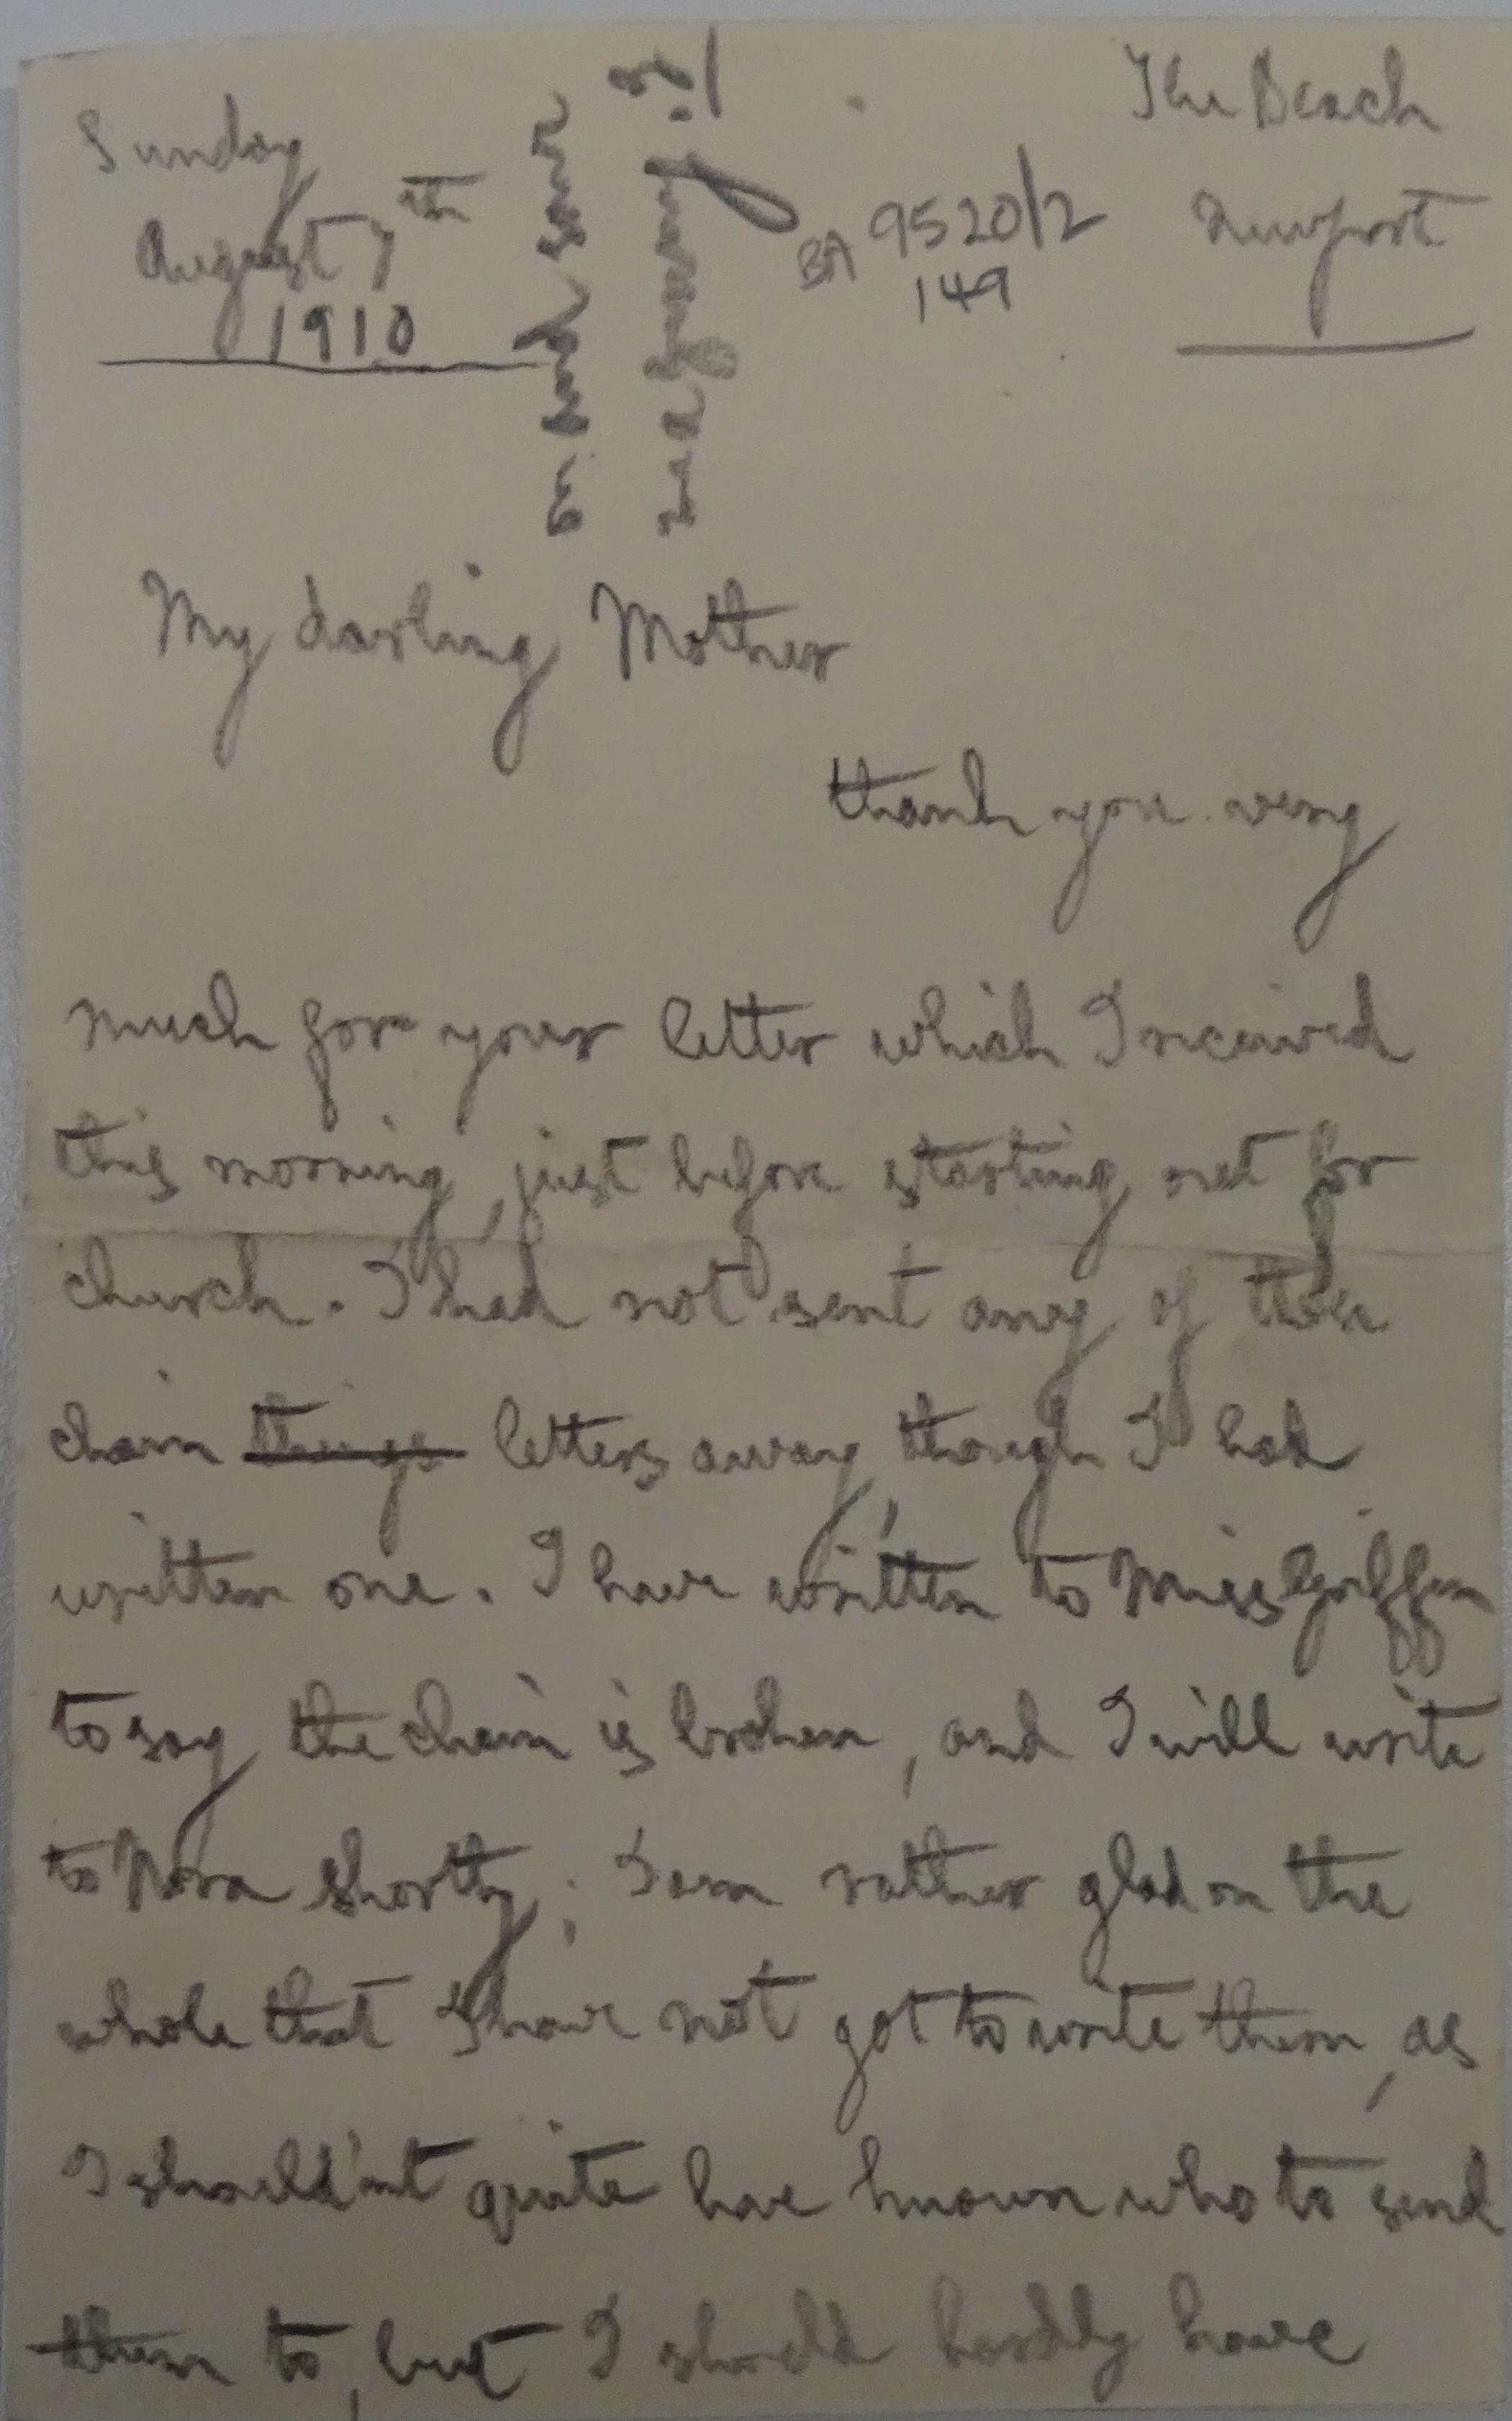 The Beach
Newport
Sunday
August 7th
1910
BA 9520/2
149
My darling Mother
thank you very
much for your letter which I received
this morning, just before starting out for
church. I had not sent any of these
chain things letters away, though I had
written one. I have written to Miss Griffin
to say the chain is broken, and I will write
to Nora shortly; I am rather glad on the
whole that I have not got to write them, as
I should'nt quite have known who to send
them to, but I should hardly have